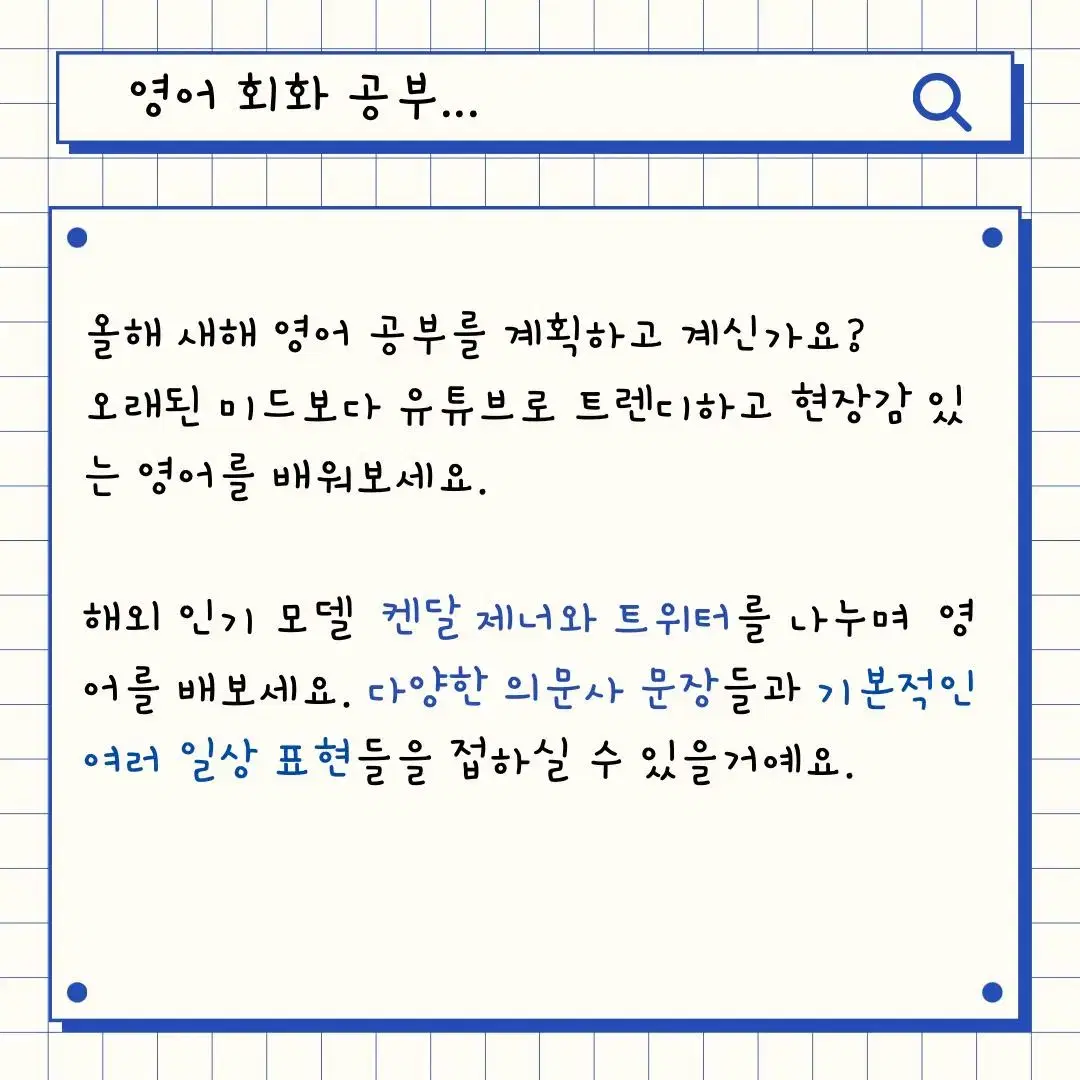 영어 회화 공부...
올해 새해 영어 공부를 계획하고 계신가요?
오래된 미드보다 유튜브로 트렌디하고 현장감 있
는 영어를 배워보세요.
해외 인기 모델 켄달 제너와 트위터를 나누며 영
어를 배보세요. 다양한 의문사 문장들과 기본적인
여러 일상 표현들을 접하실 수 있을거예요.